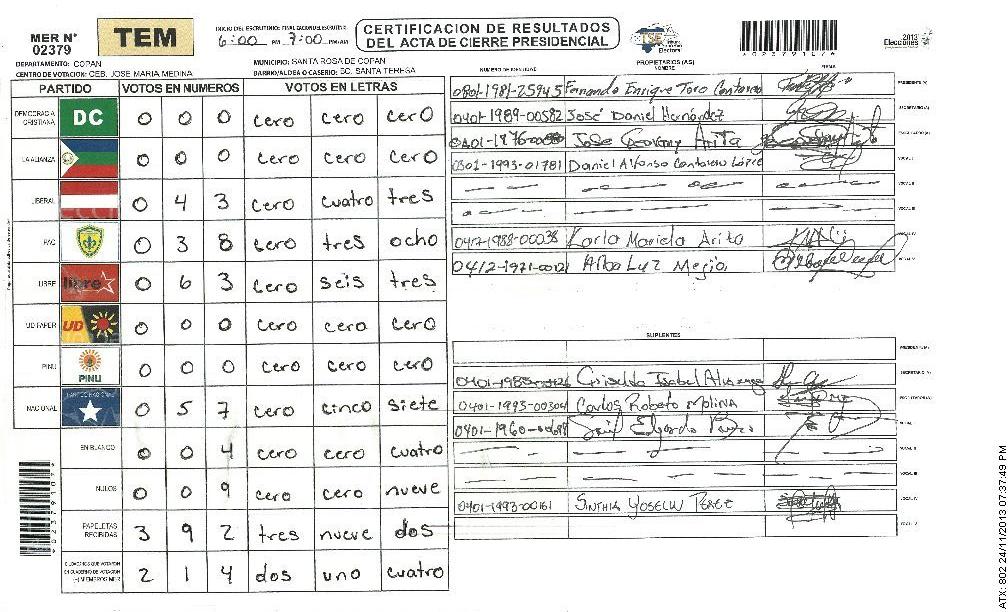 MER N° 02379
TEM
INICIO DEL ESCRUTINIO: FINALIZACION DEL ESCRUTINIO:
6:00 PM 7:00 PM-AM
CERTIFICACION DE RESULTADOS
DEL ACTA DE CIERRE PRESIDENCIAL
TSE
2013
Elecciones
DEPARTAMENTO: COPAN
MUNICIPIO: SANTA ROSA DE COPAN
CENTRO DE VOTACION: CEB. JOSE MARIA MEDINA
BARRIO/ALDEA O CASERIO: BO. SANTA TERESA
PARTIDO VOTOS EN NUMEROS VOTOS EN LETRAS
DEMOCRACIA CRISTIANA DC 0 0 0 cero cero cero
LA ALIANZA 0 0 0 cero cero cero
LIBERAL 0 4 3 cero cuatro tres
PAC 0 3 8 cero tres ocho
LIBRE libre 0 6 3 cero seis tres
UD FAPER UD 0 0 0 cero cero cero
PINU PINU 0 0 0 cero cero cero
NACIONAL 0 5 7 cero cinco siete
EN BLANCO 0 0 4 cero cero cuatro
NULOS 0 0 9 cero cero nueve
PAPELETAS RECIBIDAS 3 9 2 tres nueve dos
2 1 4 dos uno cuatro
NUMERO DE IDENTIDAD PROPIETARIOS (AS) NOMBRE FIRMA
0801-1981-25945 Fernando Enrique Toro PRESIDENTE(A)
0401-1989-00582 José Daniel Hernández SECRETARIO(A)
Jose Geovany Arita ESCRUTADOR(A)
1993-01781 Daniel Alfonso VOCAL I
VOCAL II
VOCAL III
1988-00038 Karla Mariela Arita VOCAL IV
Alba Luz Mejia VOCAL V
SUPLENTES
PRESIDENTE(A)
Griselda Isabel SECRETARIO(A)
0401-1993-00304 Carlos Roberto Molina
Saúl Edgardo VOCAL I
VOCAL II
VOCAL III
0401-1993-00161 SINTHIA YOSELIN PEREZ VOCAL IV
VOCAL V
023791076
ATX: 802 24/11/2013 07:37:49 PM